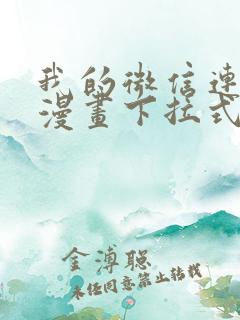 我的微信连
漫画下拉式
金溥聪
未经同意禁止转载